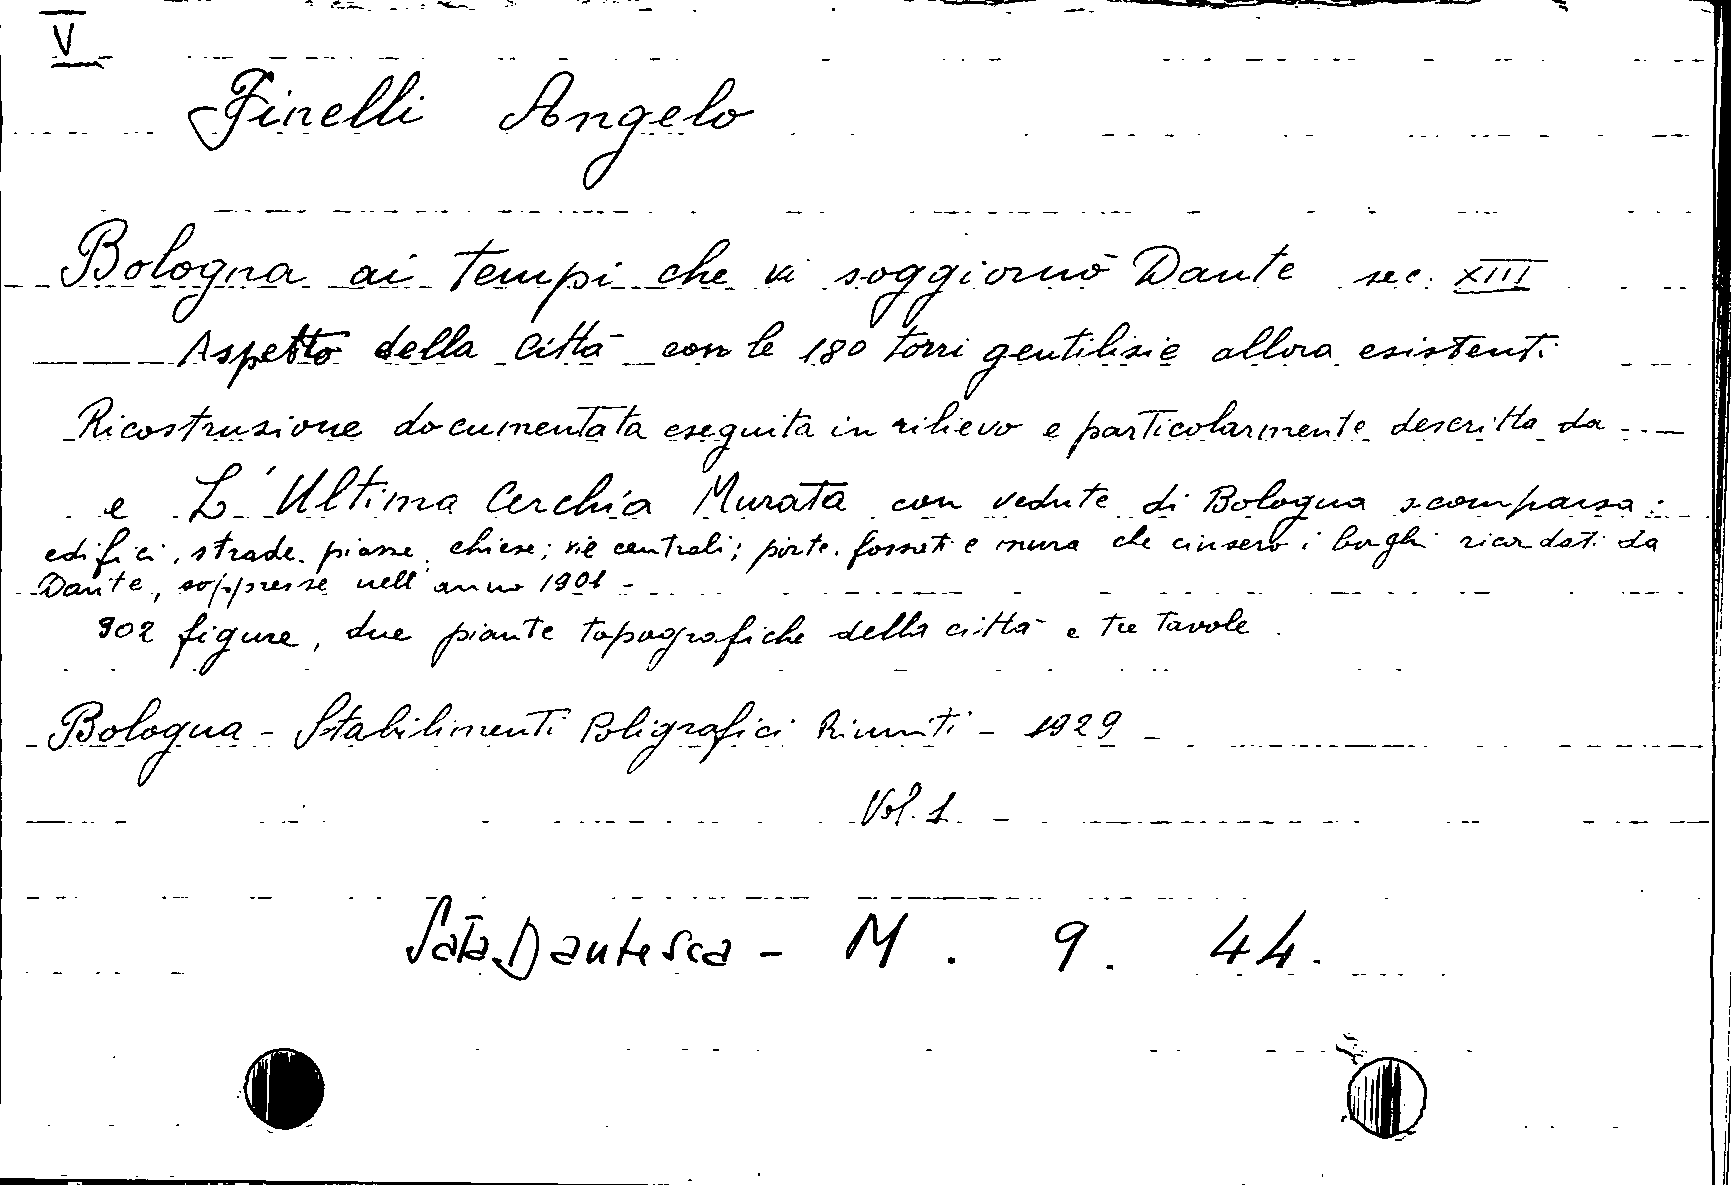 V
Finelli Angelo
Bologna ai tempi che vi soggiornò Dante sec. XIII
Aspetto della Città con le 180 torri gentilisie allora esistenti
Ricostruzione documentata eseguita in rilievo e particolarmente descritta da
e L'Ultima Cerchia Murata con vedute di Bologna scomparsa:
edifici, strade, piazze, chiese; vie centrali; porte, fossati e mura che cinsero i borghi ricordati da
Dante, soppresse nell'anno 1901 -
902 figure, due piante topografiche della città e tre tavole.
Bologna - Stabilimenti Poligrafici Riuniti - 1929 -
Vol. 1
Sala Dantesca - M. 9. 44.